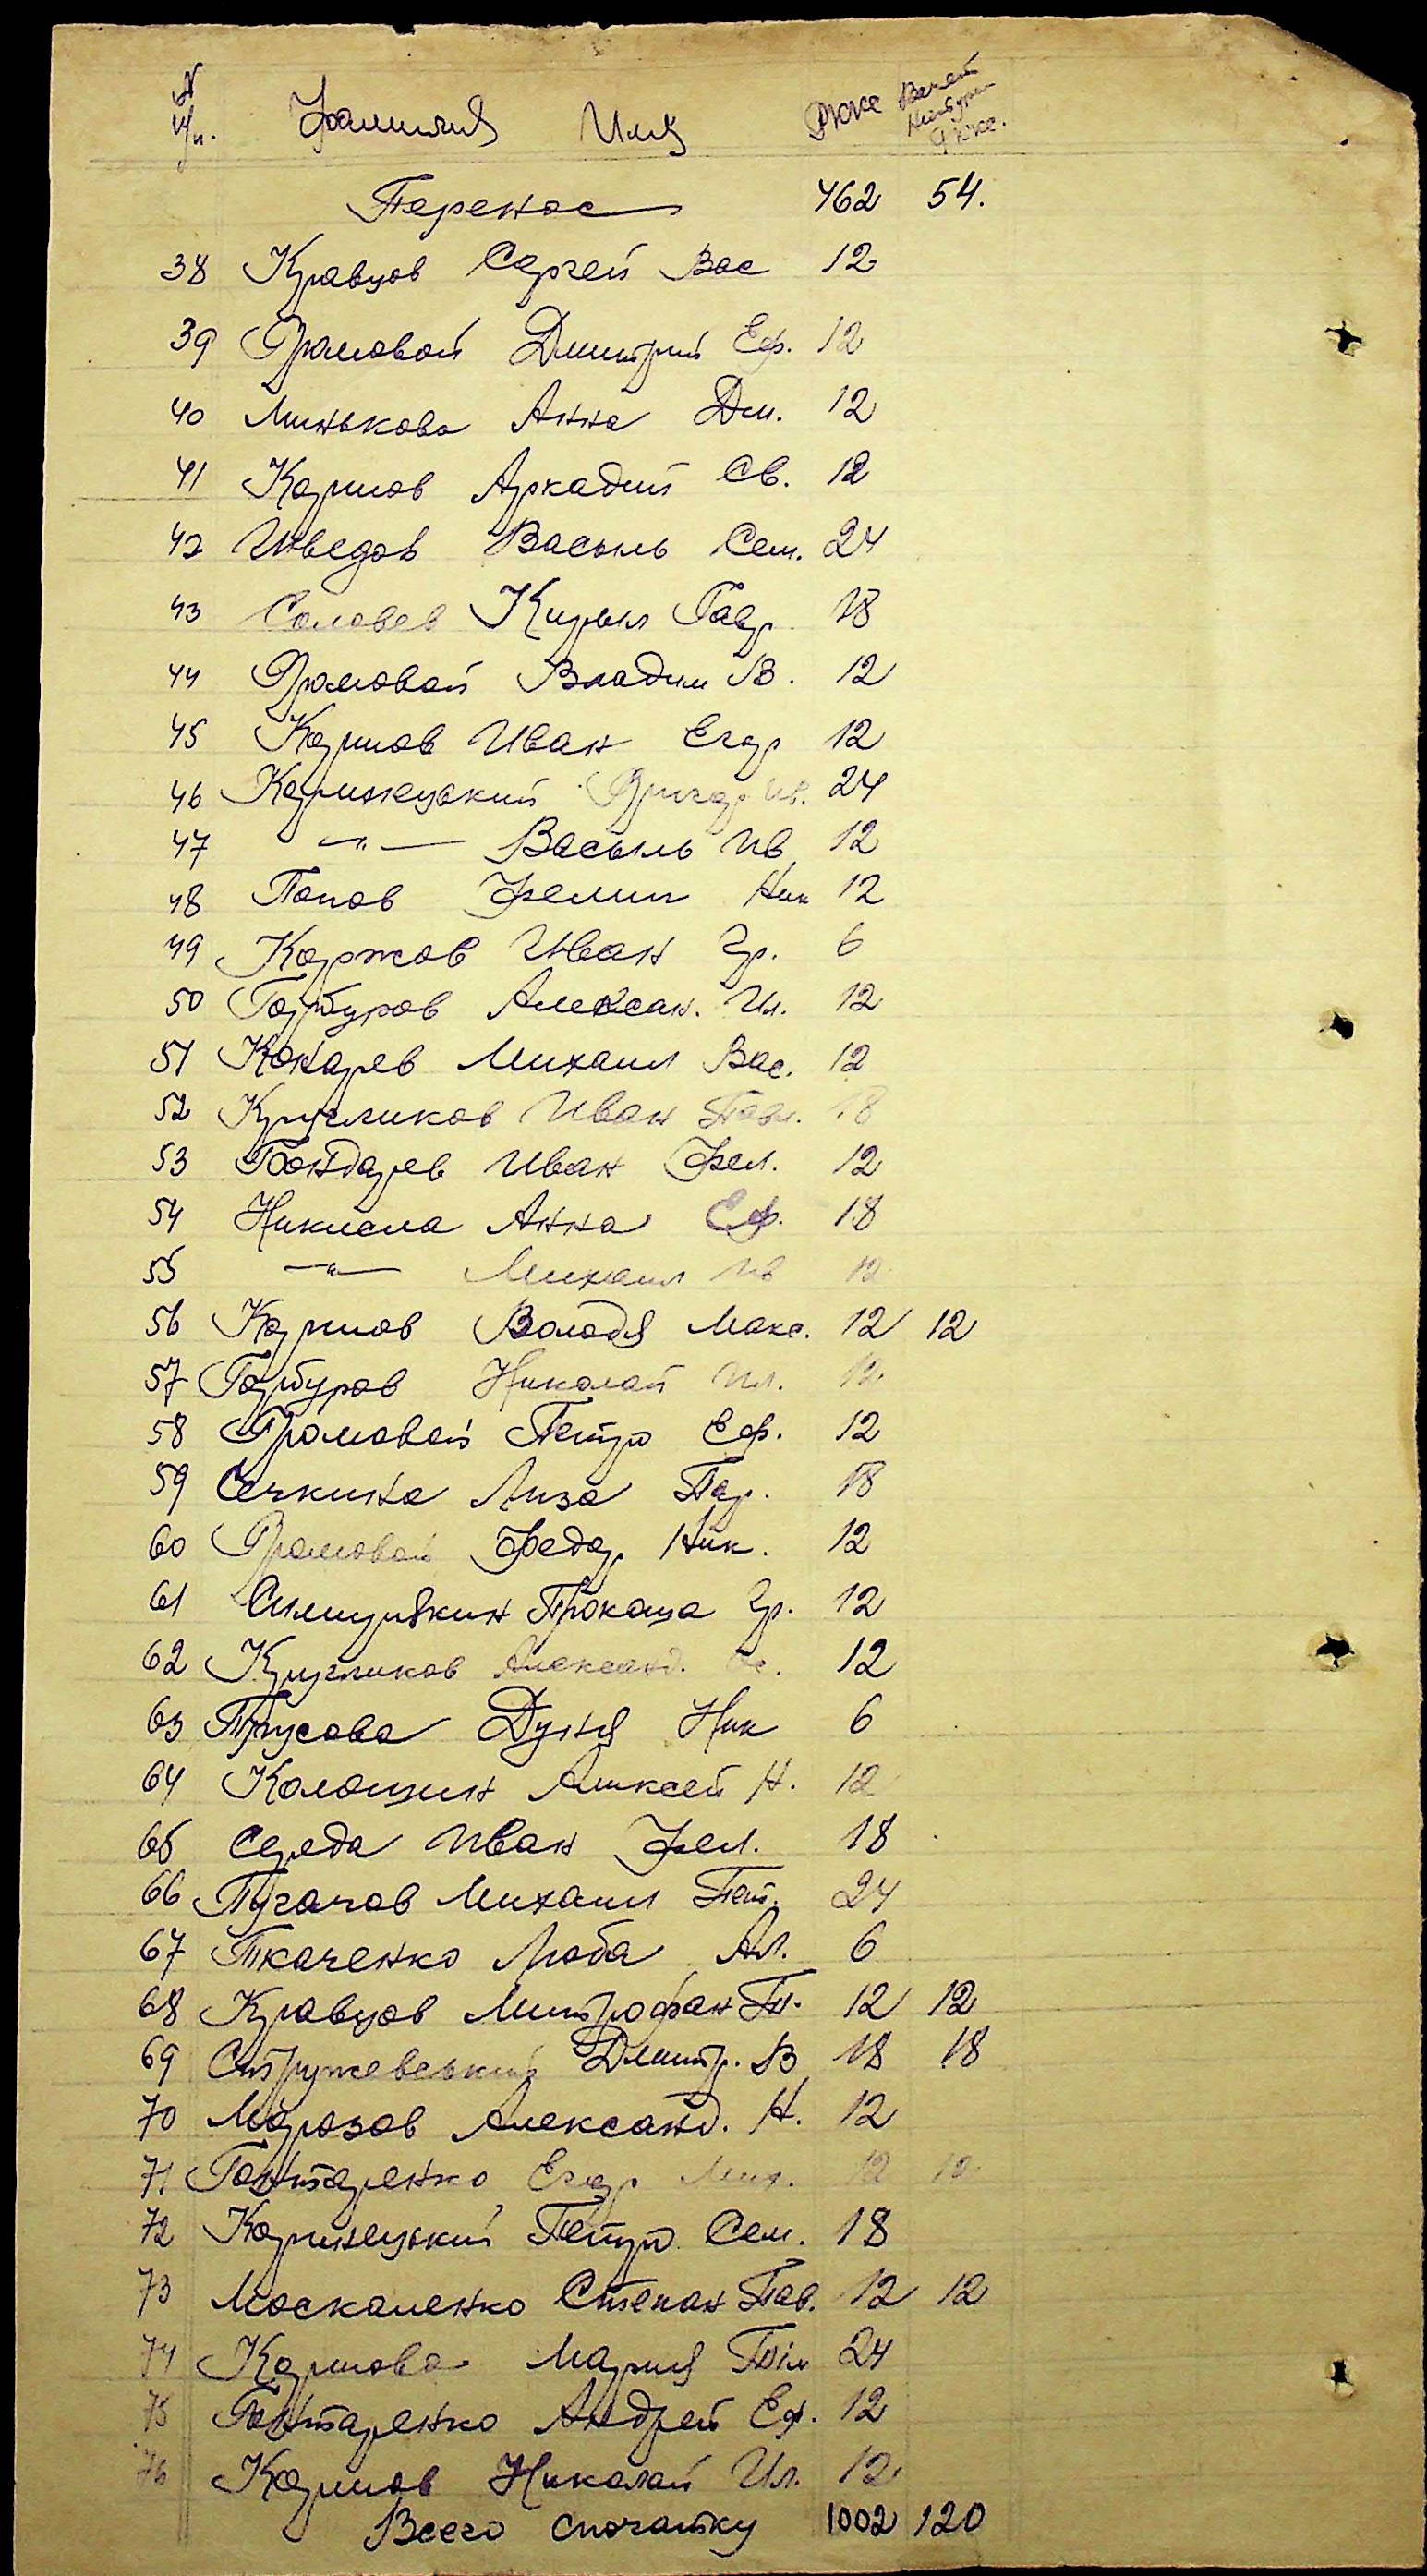 N п/п. Фамилия Имя
Перенос 462 54.
38 Кравцов Сергей Вас 12
39 Яровой Дмитрий Еф. 12
40 Минькова Анна Дм. 12
41 Карпов Аркадий Св. 12
42 Шведов Василь Сем. 24
43 Соловев Кирил Гавр. 18
44 Громовой Владим В. 12
45 Карпов Иван Егор 12
46 Ив. 24
47 —"— Василь Ив 12
48 Попов Фелип Ник 12
49 Коржов Иван Гр. 6
50 Горбуров Алексан. Ил. 12
51 Кокарев Михаил Вас. 12
52 Кругликов Иван Павл. 18
53 Бондарев Иван Фел. 12
54 Анна Еф. 18
55 —"— Михаил Ив 12
56 Карпов Володя Макс. 12 12
57 Горбуров Николай Ил. 12
58 Громовой Петро Еф. 12
59 Сечкина Лиза Пар. 18
60 Громовой Федор Ник. 12
61 Гр. 12
62 Кругликов Александ. 12
63 Трусова Дуня Ник 6
64 Колошин Алексей Н. 12
65 Середа Иван Фел. 18
66 Пугачов Михаил Пет. 24
67 Ткаченко Люба Ал. 6
68 Кравцов Митрофан Т. 12 12
69 Стружевський Дмитр. В 18 18
70 Морозов Александ. Н. 12
71 Гонтаренко Егор Мих. 12 12
72 Петро Сем. 18
73 Москаленко Степан Пав. 12 12
74 Карпова Мария 24
75 Гонтаренко Андрей Еф. 12
76 Карпов Николай Ил. 12
Всего спочатку 1002 120